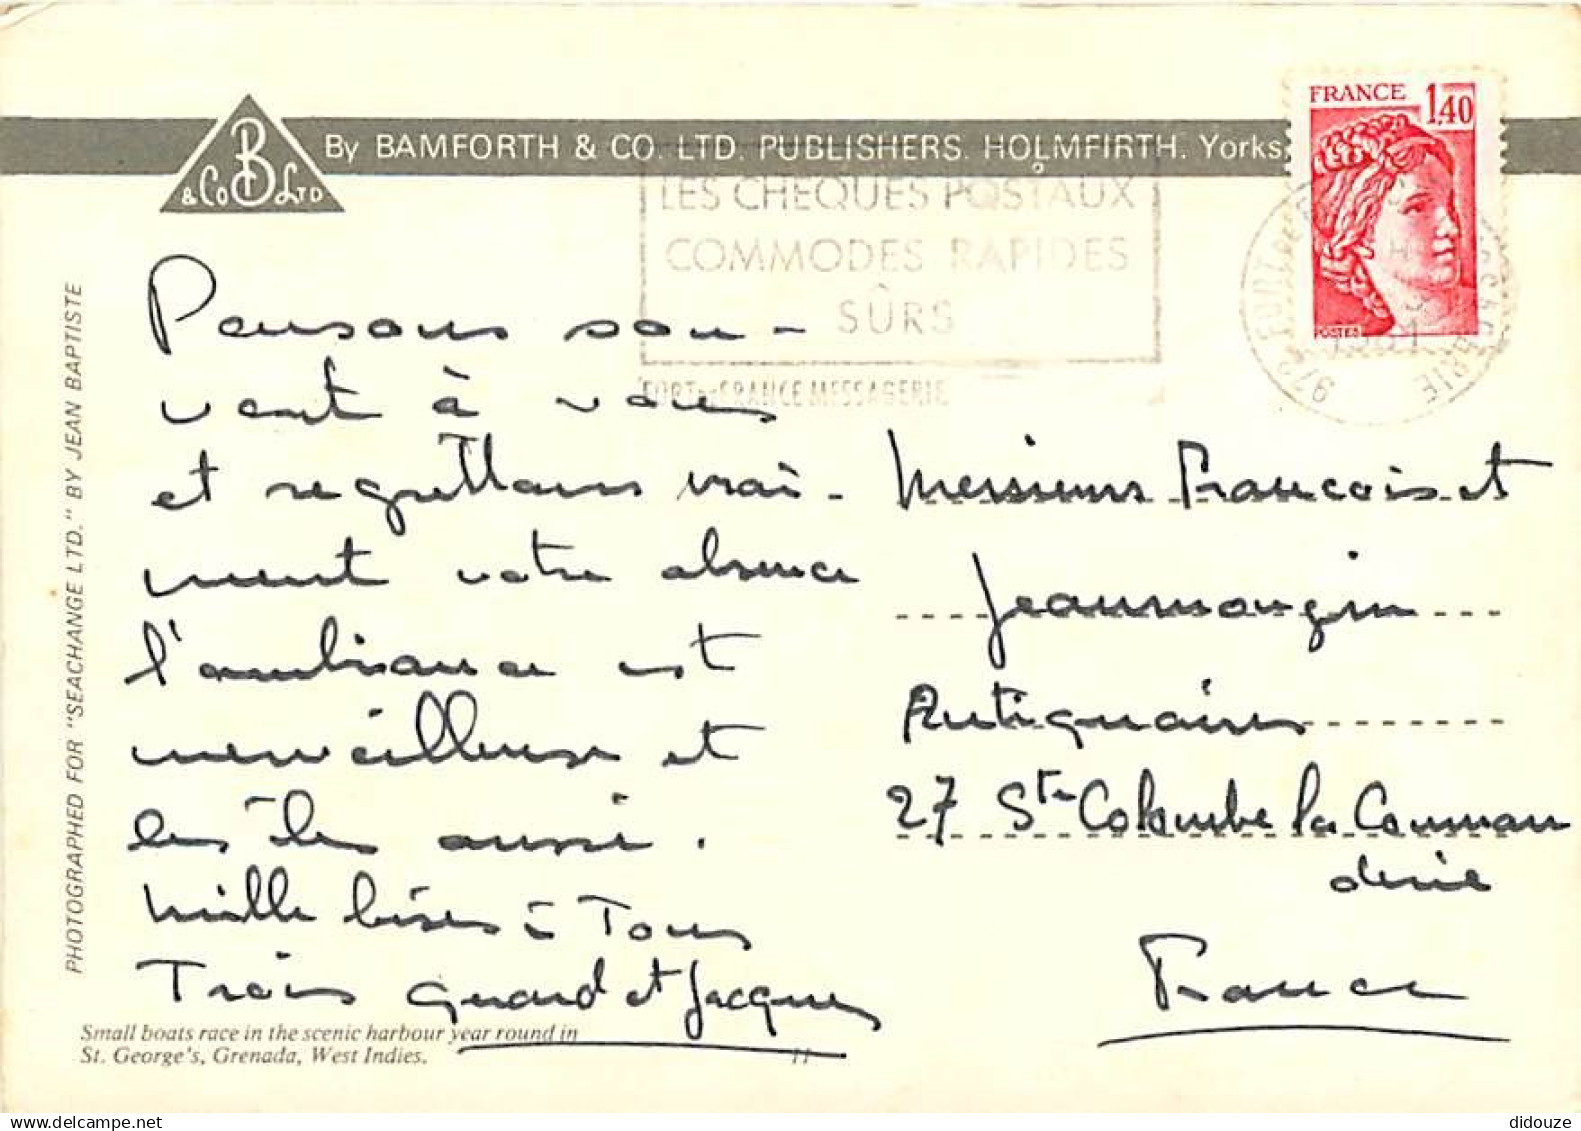 By BAMFORTH & CO. LTD. PUBLISHERS. HOLMFIRTH. Yorks.
B
& Co LTD
FRANCE 1,40
POSTES
LES CHEQUES POSTAUX
COMMODES RAPIDES
SÛRS
FORT DE FRANCE MESSAGERIE
972 FORT DE
1981
PHOTOGRAPHED FOR "SEACHANGE LTD." BY JEAN BAPTISTE
Pensons sou-
vent à vous
et regrettons vrai-
ment votre absence
l'ambiance est
merveilleuse et
les îles aussi.
Mille bises à Tous
Trois Gérard et Jacques
Messieurs Francois et
Jeanmougin
Antiquaires
27 Ste Colombe la Comman
derie
France
Small boats race in the scenic harbour year round in
St. George's, Grenada, West Indies.
11
didouze